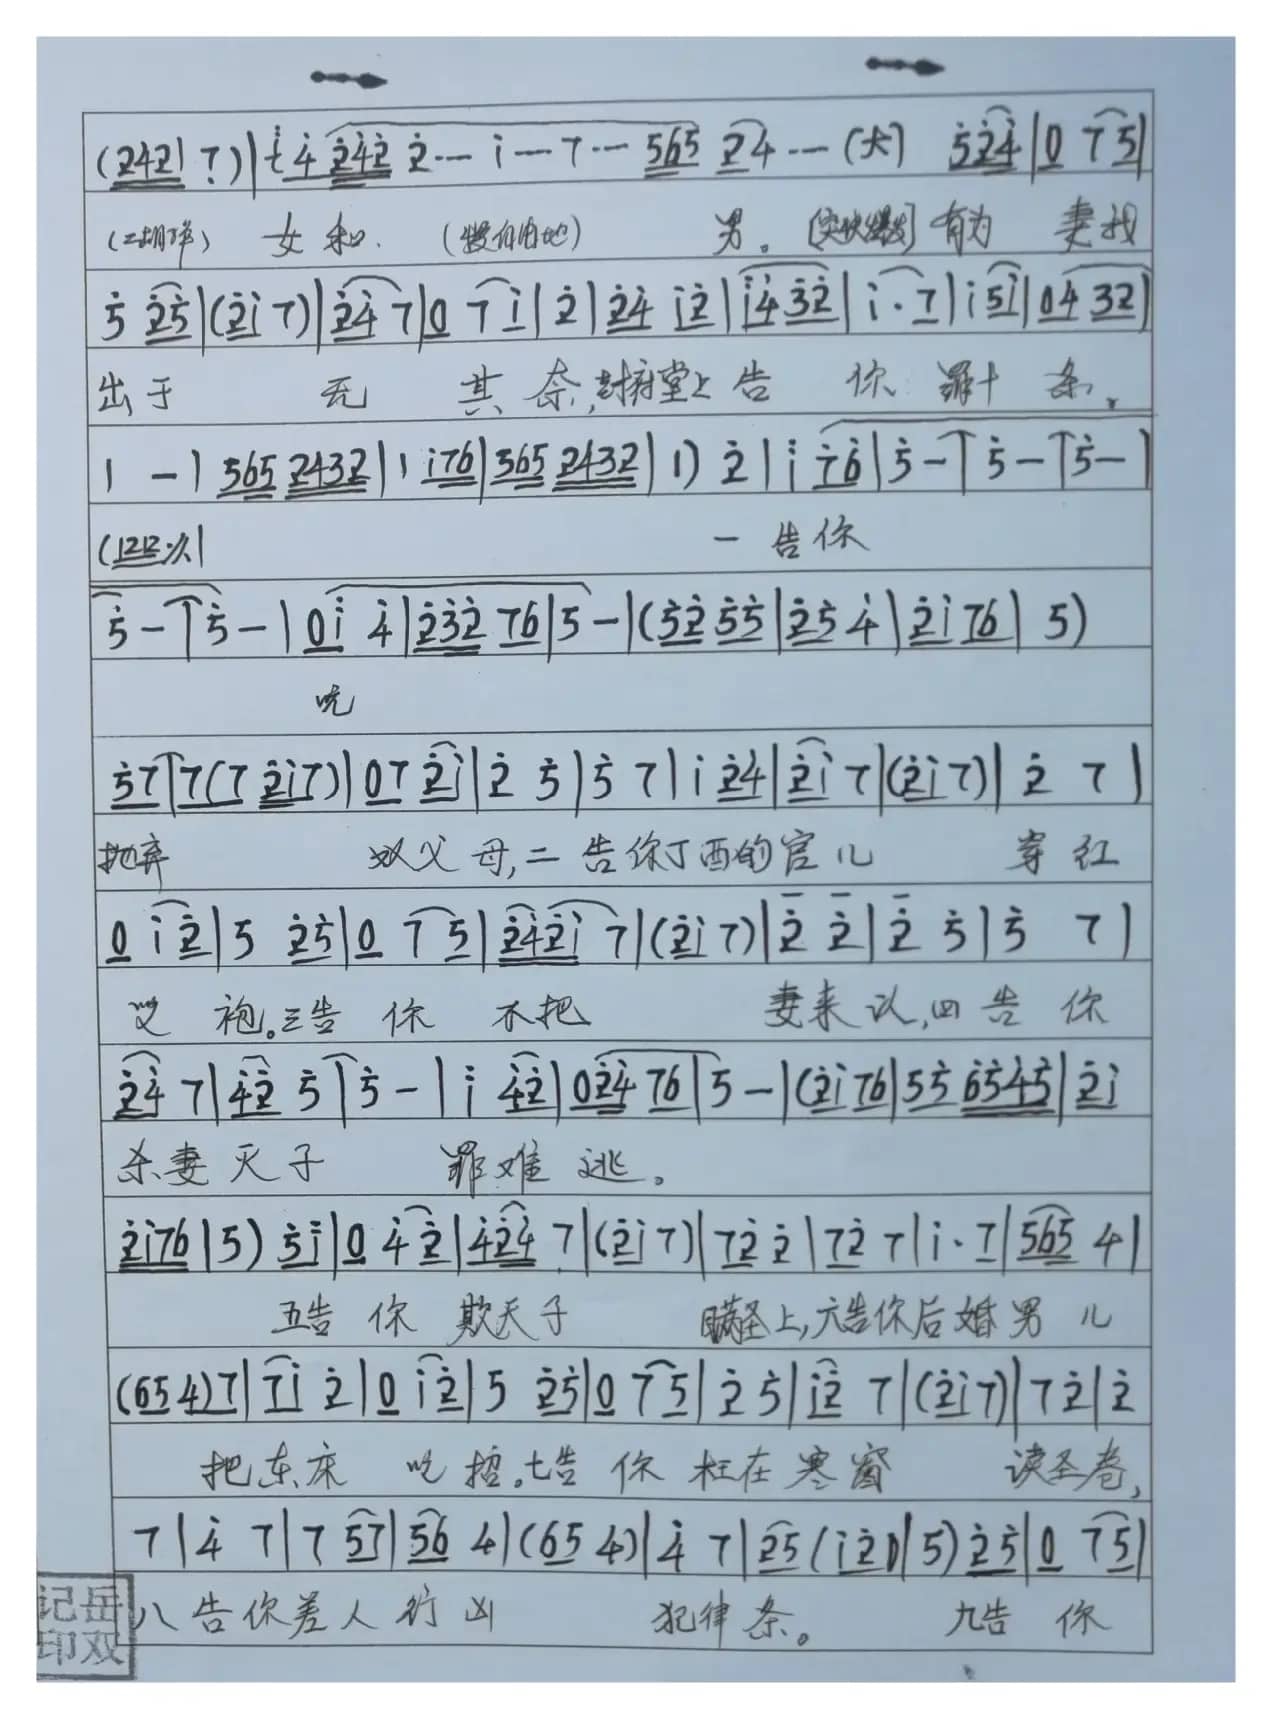 (2421 7.)|サ4 242 2… i… 7… 565 24…(大) 524|0 75|
女和. (慢自由地) 男。 有为 妻我
5 25|(2i 7)|24 7|0 7i|2|24 i2|i4 32|i·7|i 5i|04 32|
出于 无 其 奈, 封府堂上告 你 罪十 条。
1 -|565 2432|1 i76|565 2432|1) 2|i 76|5 -|5 -|5 -|
(1212·· 一 告你
5 -|5 -|0i 4|232 76|5 -|(52 55|25 4|2i 76|5)
吭
57|7(7 2i7)|07 2i|2 5|5 7|i 24|2i 7|(2i 7)|2 7|
抛弃 奴父母, 二告你丁西的官儿 穿红
0 i2|5 25|0 75|242i 7|(2i 7)|2 2|2 5|5 7|
袍。三告 你 不把 妻来认, 四告你
24 7|42 5|5 -|i 42|024 76|5 -|(2i 76|55 6545|2i
杀妻灭子 罪难 逃。
2i76|5) 5i|0 42|424 7|(2i 7)|72 2|72 7|i·7|565 4|
五告 你 欺天子 瞒圣上, 六告你后婚男儿
(65 4)7|7i 2|0 i2|5 25|0 75|2 5|i2 7|(2i 7)|7 2|2
把东床 招。七告 你 枉在寒窗 读圣卷,
7|4 7|7 57|56 4|(65 4)|4 7|25(i2)|5) 25|0 75|
八告你差人行凶 犯律条。 九告 你
岳双记印